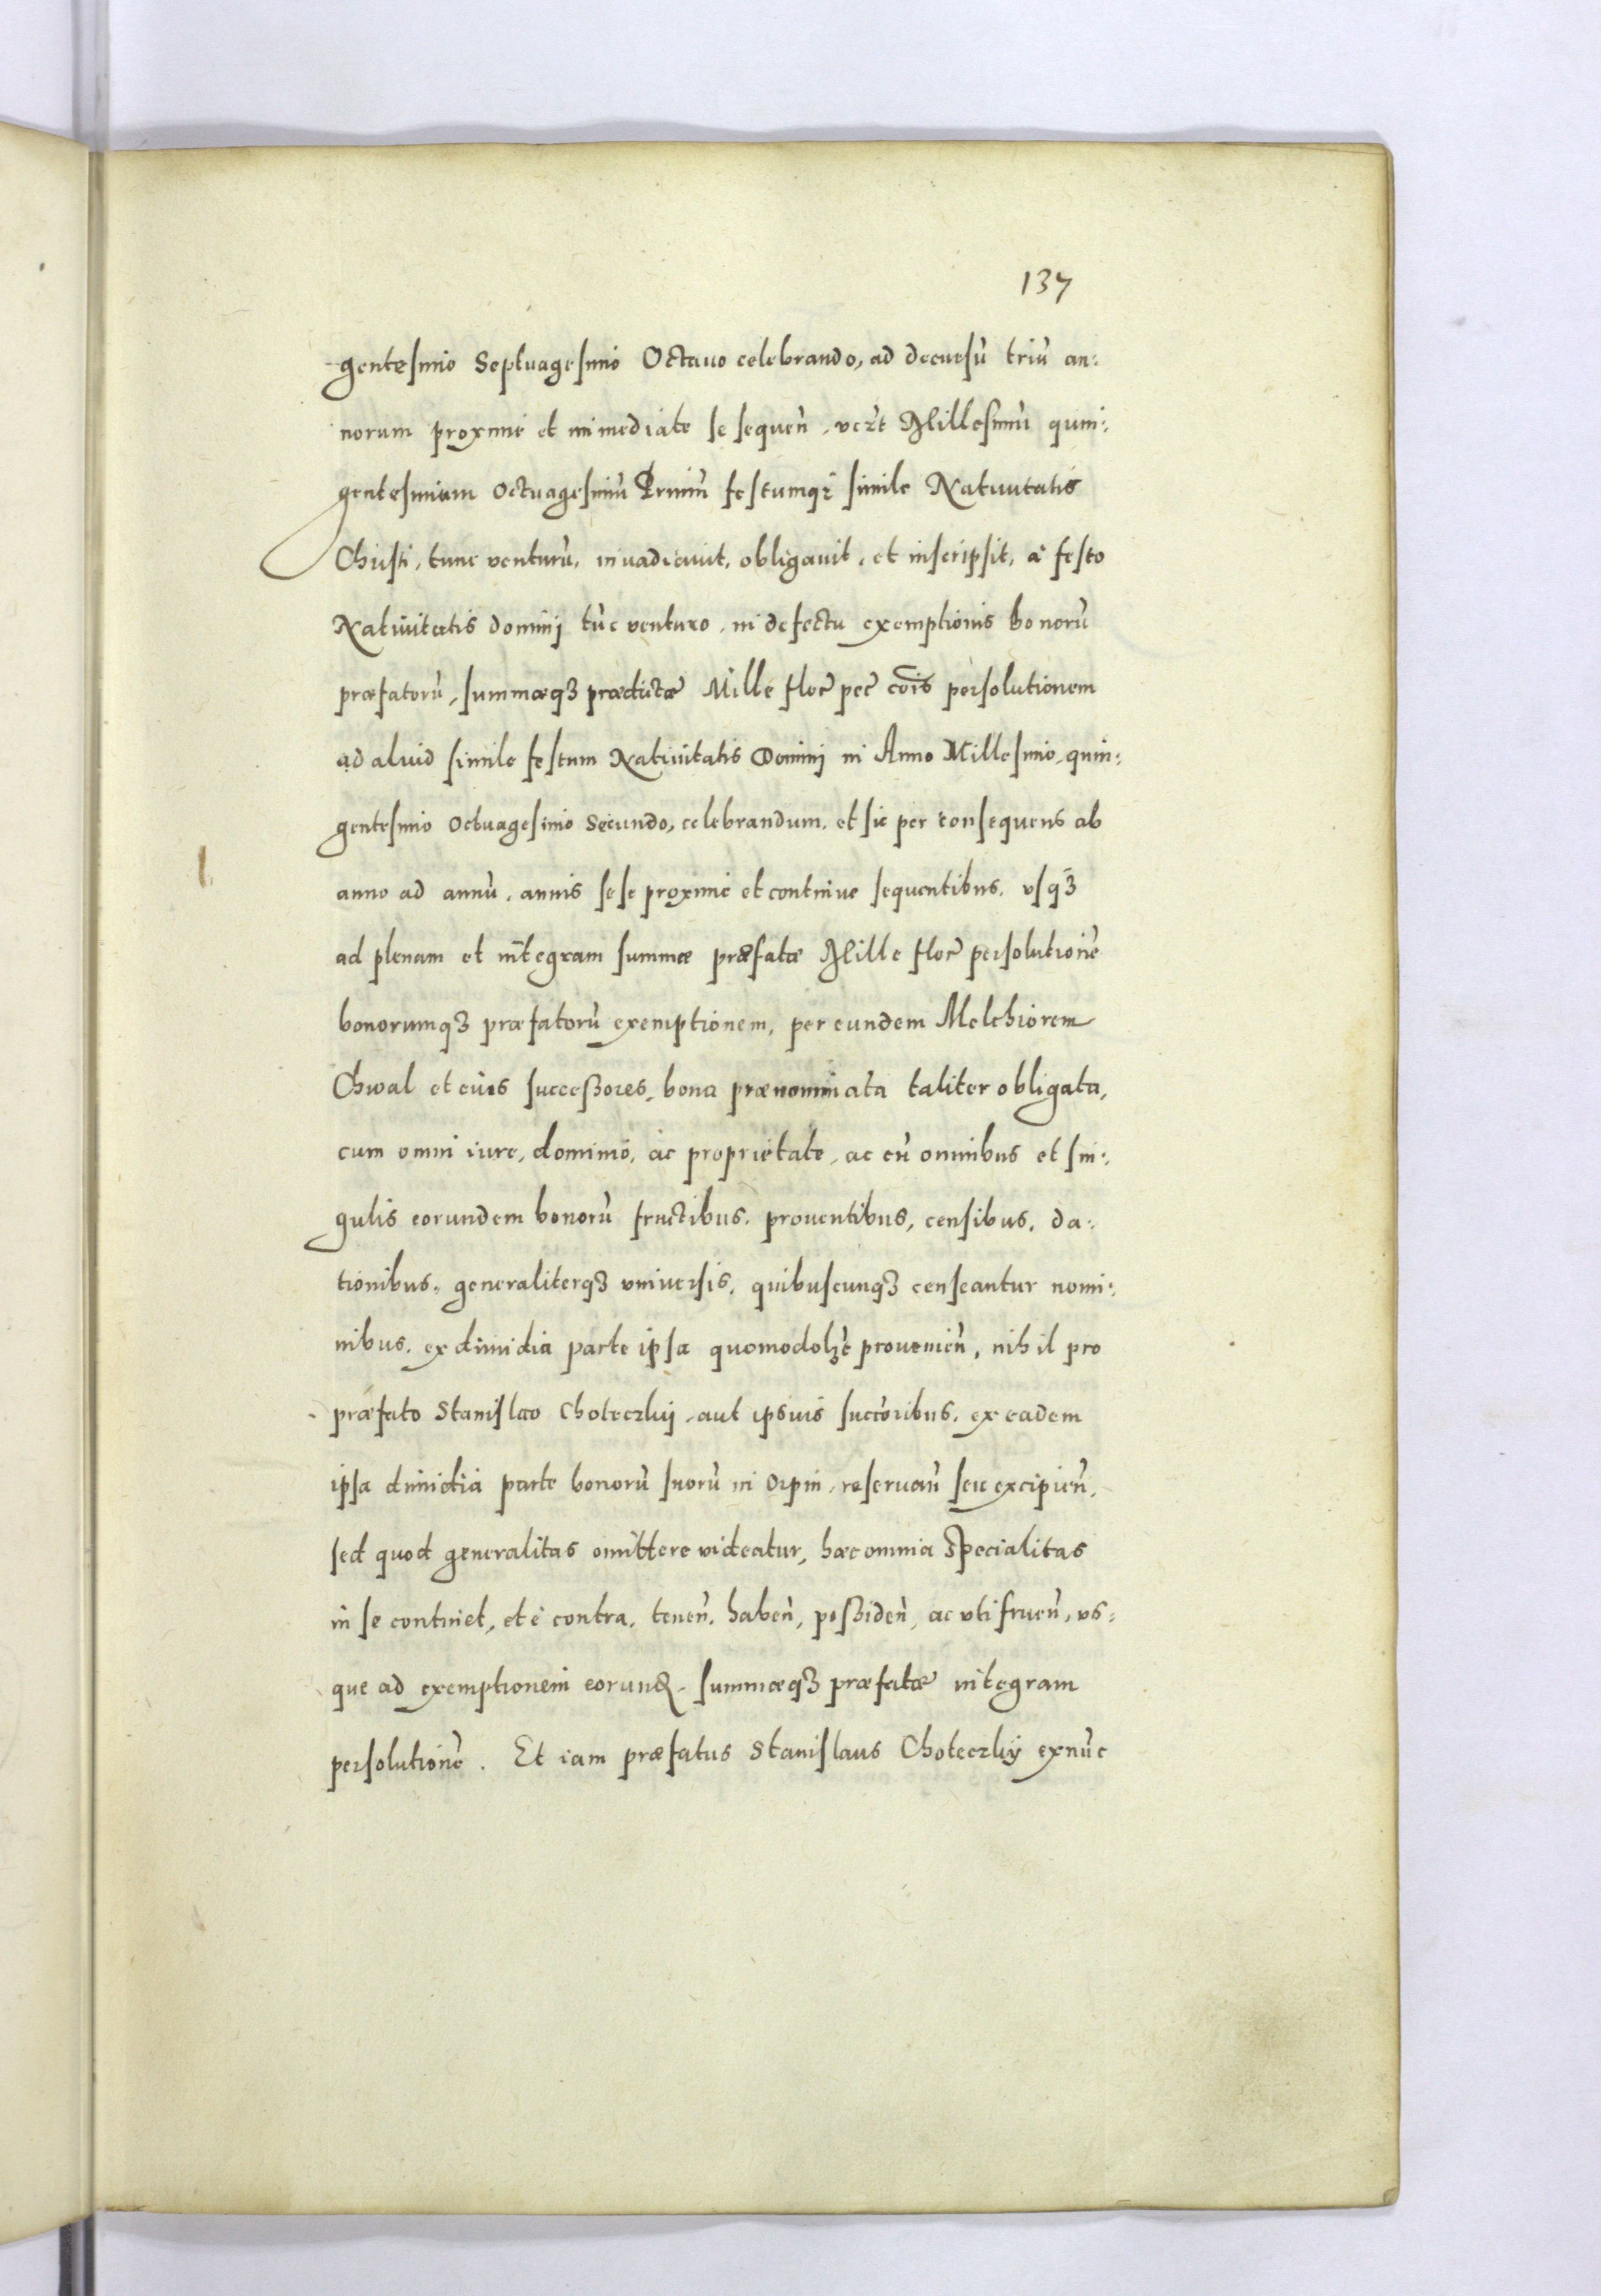 137
gentesimo Septuagesimo Octauo celebrando, ad decursũ triũ an:
norum proxime et immediate se sequeñ, Millesimũ quin:
gentesimum octuagesimũ Primũ festumq3 simile Natiuitatis
Christi, tunc venturũ, inuadiauit, obligauit, et inscripsit, à festo
Natiuitatis dominj tũc venturo, in defectu exemptionis bonorũ
præfatorũ, summæq3 prædictæ Mille flor pec cõis persolutionem
ad aliud simile festum Natiuitatis Dominj in Anno Millesimo, quin:
gentesimo octuagesimo secundo, celebrandum, et sic per consequens ab
anno ad annũ, annis sese proxime et continue sequentibus, vsq3
ad plenam et integram summæ præfatæ Mille flor persolutionẽ
bonorumq3 præfatorũ exemptionem, per eundem Melchiorem
Chwal et eius successores, bona prænominata taliter obligata,
cum omni iure, dominio, ac proprietate, ac cũ omnibus et sin:
gulis eorundem bonorũ fructibus, prouentibus, censibus, da:
tionibus, generaliterq3 vniuersis, quibuscunq3 censeantur nomi:
nibus, ex dimidia parte ipsa quomodolꝫt prouenieñ, nihil pro
præfato Stanislao Choteczkij, aut ipsius succõribus, ex eadem
ipsa dimidia parte bonorũ suorũ in Orpin, reseruañ seu excipieñ,
sed quod generalitas omittere videatur, hæc omnia specialitas
in se continet, et è contra, teneñ, habeñ, possideñ, ac vtifrueñ, vs:
que ad exemptionem eorund, summæq3 præfatæ integram
persolutionẽ. Et iam præfatus Stanislaus Choteczkij exnũc